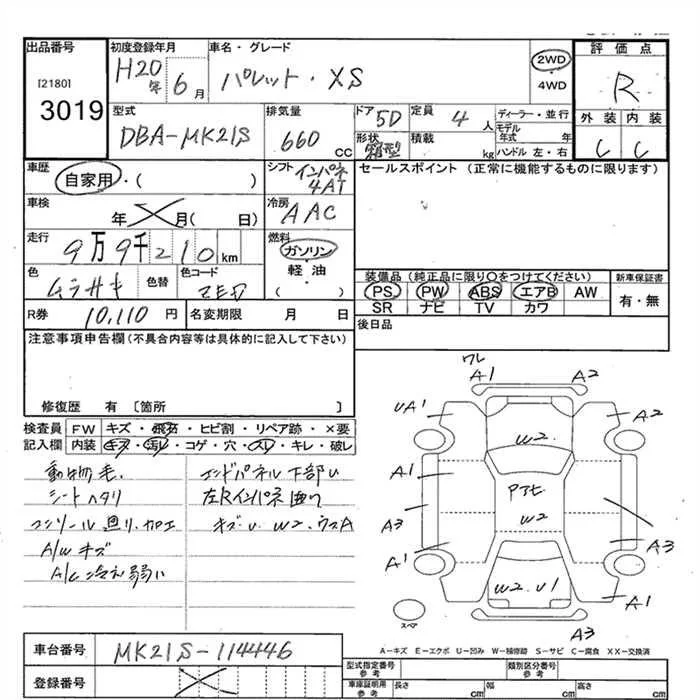 出品番号 初度登録年月 車名・グレード 評価点
[2180] H20年 6月 パレット・XS 2WD ・ 4WD R
3019
型式 排気量 ドア 5D 定員 4人 ディーラー・並行 外装 内装
DBA-MK21S 660cc 形状 箱型 積載 kg モデル年式 年 ハンドル 左・右 C C
車歴 自家用・( ) シフト インパネ 4AT セールスポイント (正常に機能するものに限ります)
車検 年 月( 日) 冷房 AAC
走行 9万9千210km 燃料 ガソリン・軽油 ( )
色 ムラサキ 色替 色コード
装備品(純正品に限り○をつけてください) 新車保証書
PS PW ABS エアB AW 有・無
SR ナビ TV カワ
R券 10,110円 名変期限 月 日 後日品
注意事項申告欄(不具合内容等は具体的に記入して下さい)
修復歴 有〔箇所 〕
検査員記入欄 FW キズ・飛石・ヒビ割・リペア跡・×要
内装 キズ・汚レ・コゲ・穴・スレ・キレ・破レ
動物毛 エンドパネル下部U
シートヘタリ 左Rインパネ曲り
コンソール廻り加工 キズ・U W2・ウスA
A/Wキズ
A/C冷え弱い
ワレ
A1 A2
UA1 A2
W2
A1
Pアモ
W2
A3 A3
A1
W2.U1 A1
スペア
A3
A-キズ E-エクボ U-凹み W-補修跡 S-サビ C-腐食 XX-交換済
車台番号 MK21S-114446
登録番号
型式指定番号 参考 類別区分番号 参考
車庫証明用 参考 長さ cm 幅 cm 高さ cm